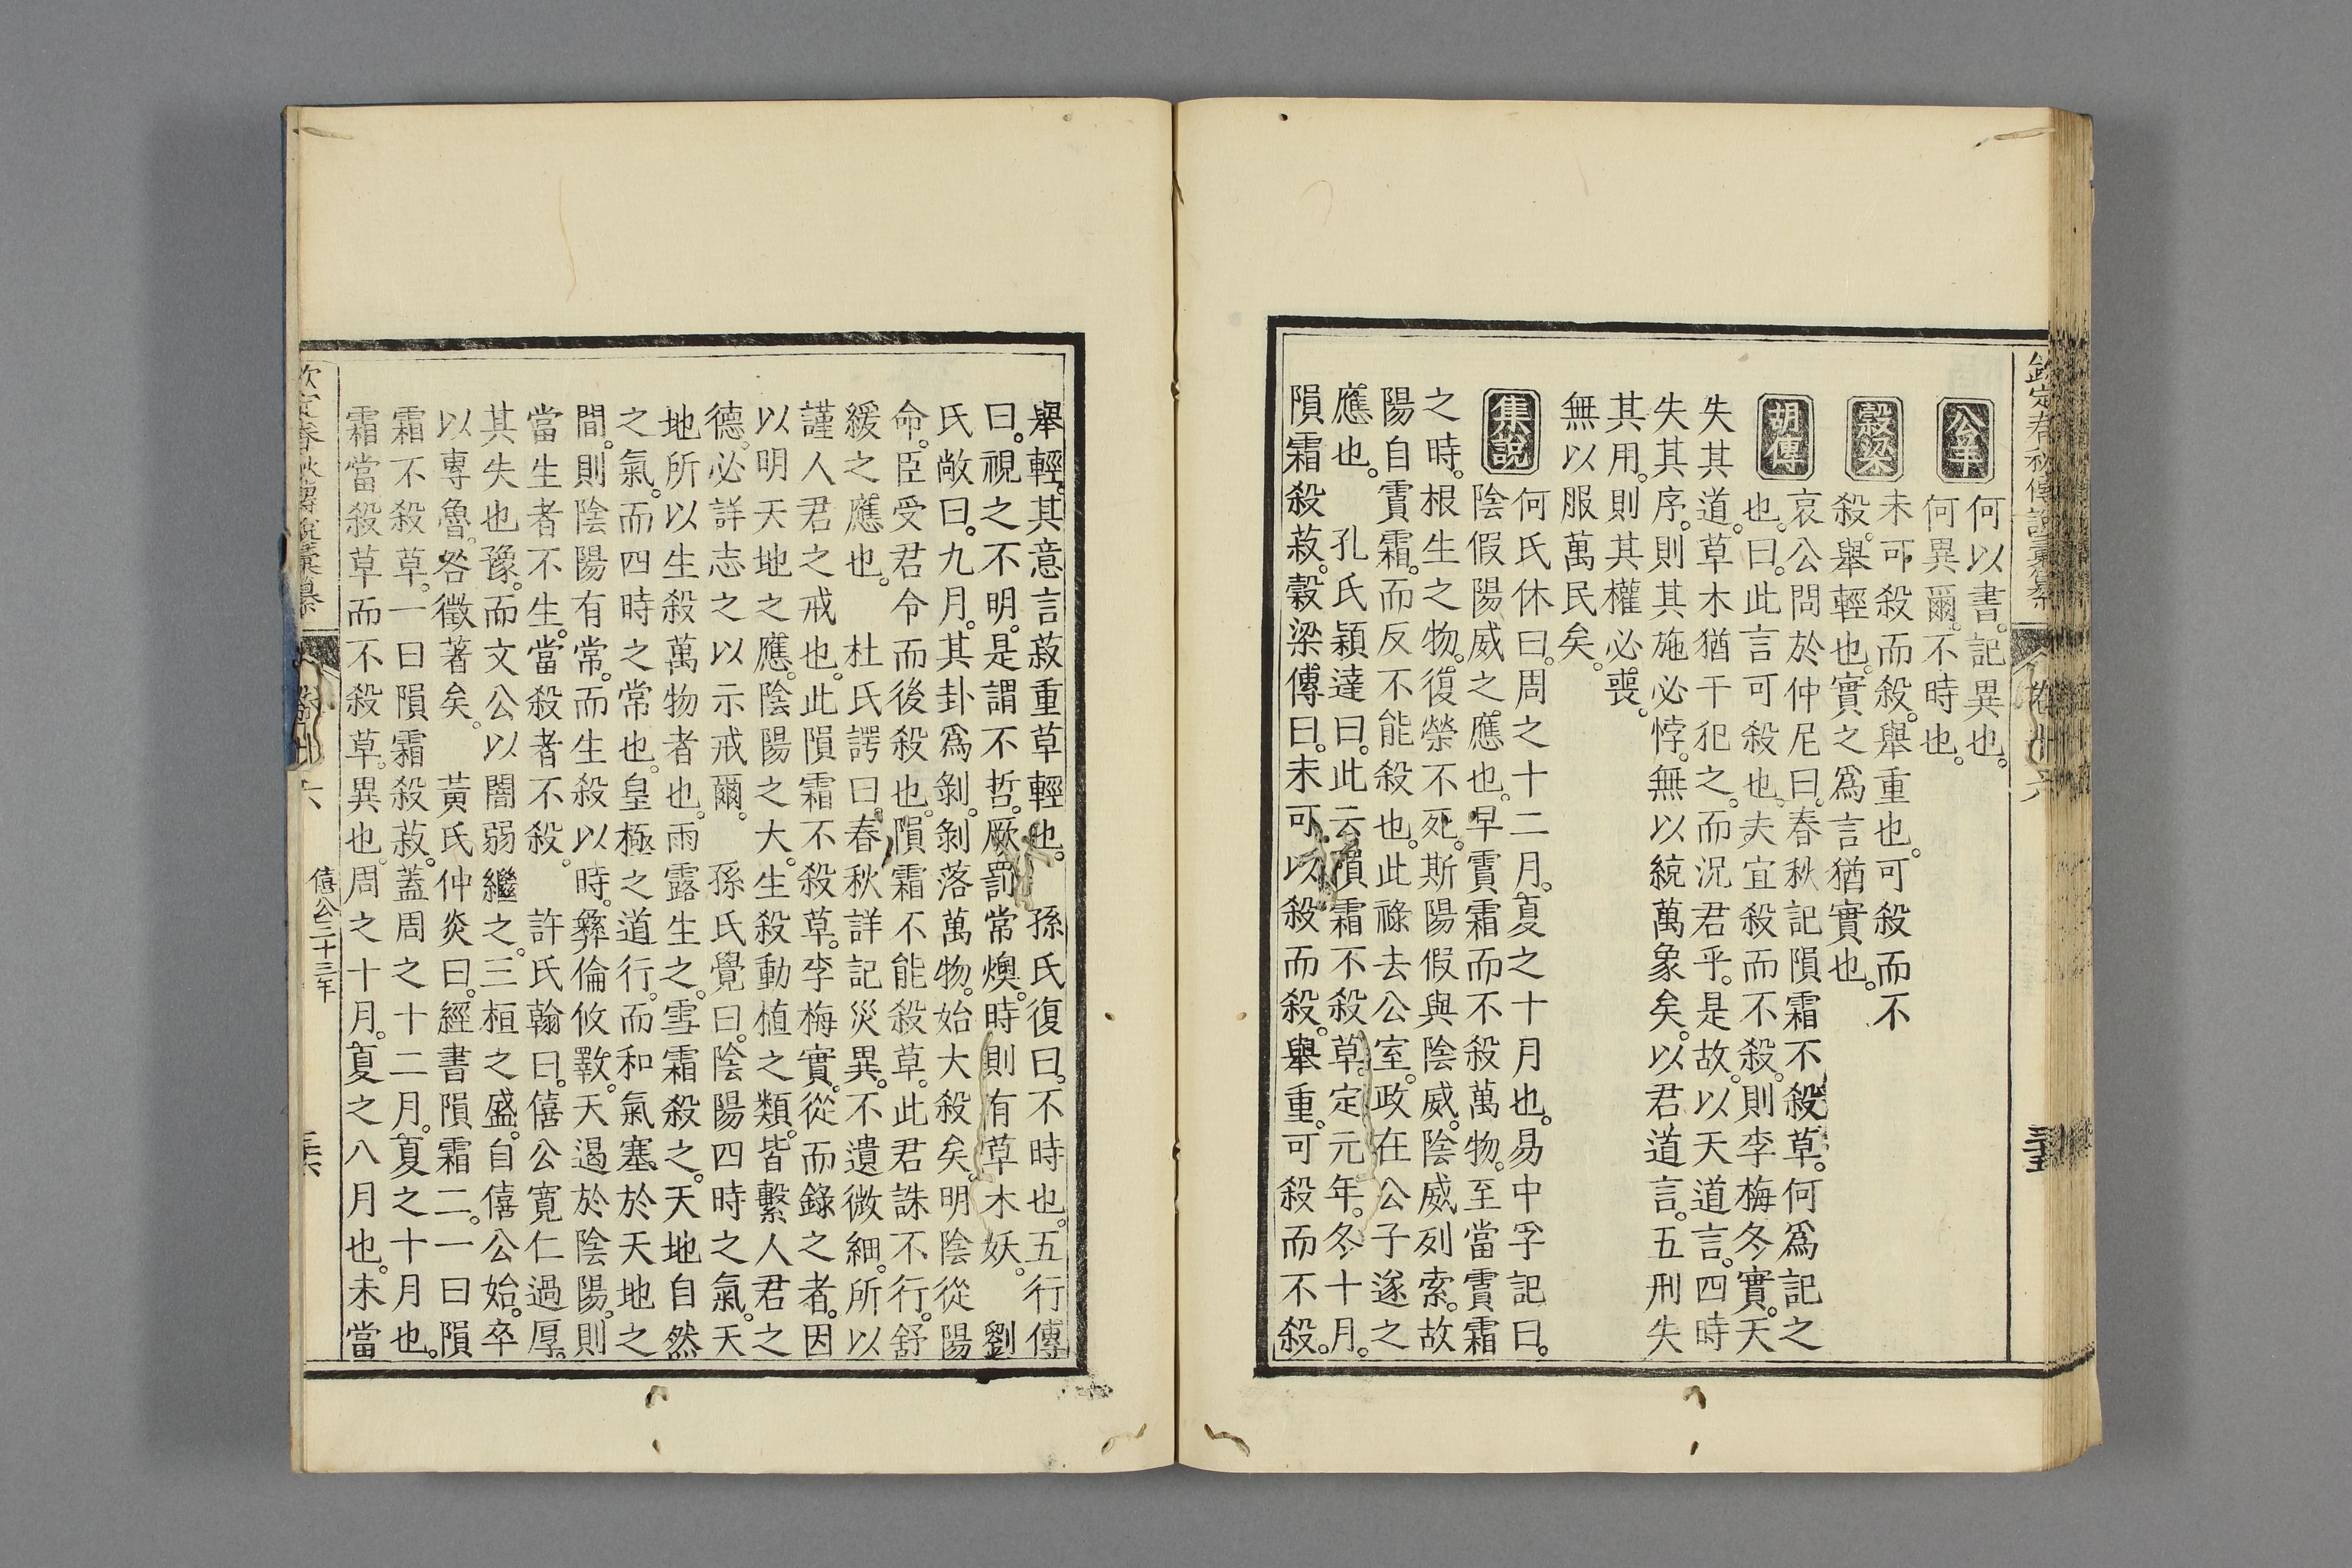 欽定春秋傳說彙纂 卷十六
公羊 何以書。記異也。
何異爾。不時也。
未可殺而殺。舉重也。可殺而不
穀梁 殺。舉輕也。實之爲言猶實也。
哀公問於仲尼曰。春秋記隕霜不殺草。何爲記之
胡傳 也。曰。此言可殺也。夫宜殺而不殺。則李梅冬實。天
失其道。草木猶干犯之。而況君乎。是故以天道言。四時
失其序。則其施必悖。無以統萬象矣。以君道言。五刑失
其用。則其權必喪。
無以服萬民矣。
集說 何氏休曰。周之十二月。夏之十月也。易中孚記曰。
陰假陽威之應也。早霣霜而不殺萬物。至當霣霜
之時。根生之物。復榮不死。斯陽假與陰威。陰威列索。故
陽自霣霜。而反不能殺也。此祿去公室。政在公子遂之
應也。 孔氏穎達曰。此云隕霜不殺草。定元年。冬十月。
隕霜殺菽。穀梁傳曰。未可以殺而殺。舉重。可殺而不殺。
舉輕。其意言菽重草輕也。 孫氏復曰。不時也。五行傳
曰。視之不明。是謂不哲。厥罰常燠。時則有草木妖。 劉
氏敞曰。九月。其卦爲剝。剝落萬物。始大殺矣。明陰從陽
命。臣受君令而後殺也。隕霜不能殺草。此君誅不行。舒
緩之應也。 杜氏諤曰。春秋詳記災異。不遺微細。所以
謹人君之戒也。此隕霜不殺草。李梅實。從而錄之者。因
以明天地之應。陰陽之大。生殺動植之類。皆繫人君之
德。必詳志之以示戒爾。 孫氏覺曰。陰陽四時之氣。天
地所以生殺萬物者也。雨露生之。雪霜殺之。天地自然
之氣。而四時之常也。皇極之道行。而和氣塞於天地之
間。則陰陽有常。而生殺以時。彝倫攸斁。天遏於陰陽。則
當生者不生。當殺者不殺。 許氏翰曰。僖公寬仁過厚。
其失也豫。而文公以闇弱繼之。三桓之盛。自僖公始。卒
以專魯。咎徵著矣。 黃氏仲炎曰。經書隕霜二。一曰隕
霜不殺草。一曰隕霜殺菽。蓋周之十二月。夏之十月也。
霜當殺草而不殺草。異也。周之十月。夏之八月也。未當
欽定春秋傳說彙纂 卷十六 僖公三十三年